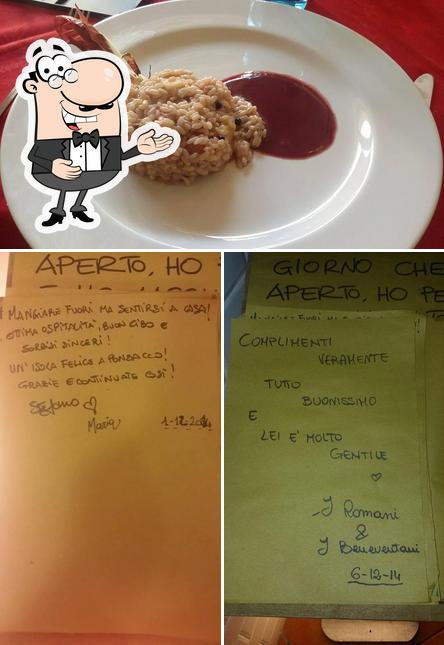 APERTO, HO
MANGIARE FUORI MA SENTIRSI A CASA!
OTTIMA OSPITALITÀ, BUON CIBO E
SORRISI SINCERI!
UN'ISOLA FELICE A PONSACCO!
GRAZIE E CONTINUATE COSÌ!
Stefano
Maria
GIORNO CHE
APERTO, HO PE
COMPLIMENTI
VERAMENTE
TUTTO
BUONISSIMO
E
LEI E' MOLTO
GENTILE
I Romani
&
I Beneventani
6-12-14